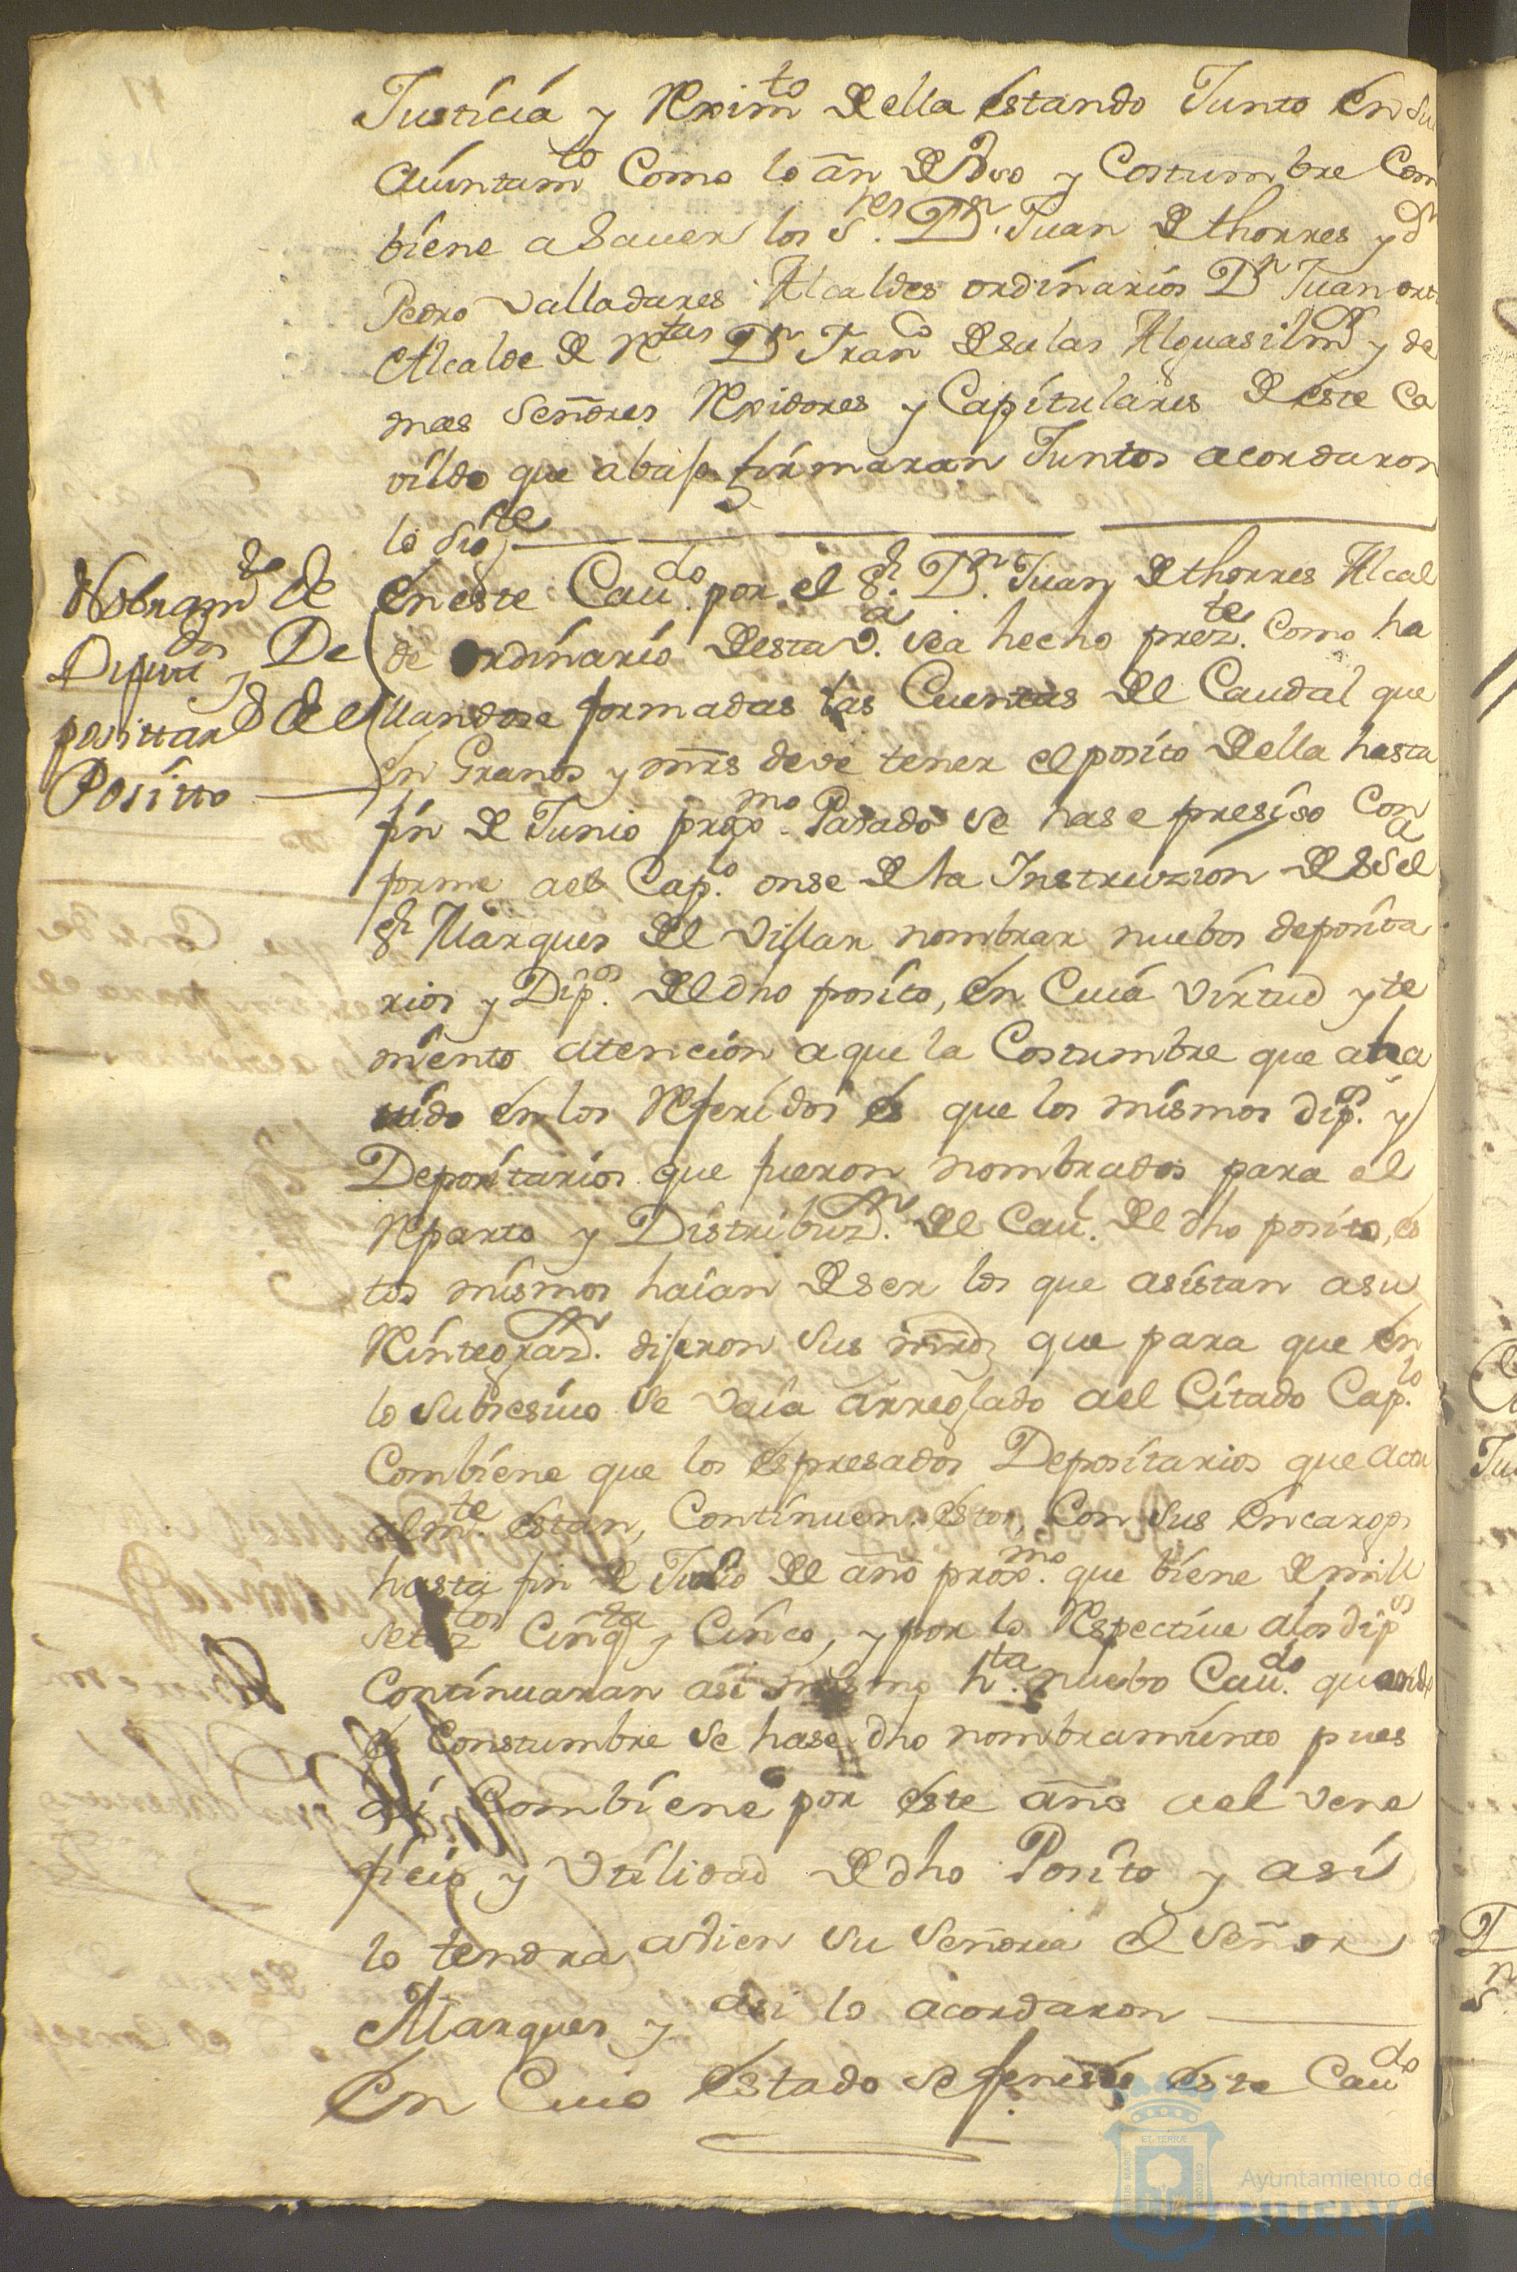 Justicia y Rexim.to de ella estando Junto en su
Aiuntam.to Como lo an de Vso y Costumbre Com
biene a Sauer los S.res D.n Juan de thorres y D.n
Pedro Valladares Alcaldes ordinarios D.n Juan ort
Alcalde de R.tas D.n Fran.co de Salas Alguasil m.r y de
mas Señores Rexidores y Capitulares de este Ca
vildo que abajo firmaran Juntos acordaron
lo Sig.te
Nobram.to de
Diput.dos y De
posittar.os del
Positto
En este Cau.do por el S.r D.n Juan de thorres Alcal
de ordinario desta V.a sea hecho prez.te Como ha
llandose formadas las Cuentas del Caudal que
en Granos y mrs deve tener el posito de ella hasta
fin de Junio prox.mo Pasado se hase presiso Con
forme ael Cap.lo onse de la Instruzion de S S.a el
S.r Marques del Villar nombrar nuebos deposita
rios y Dip.os del dho posito, en Cuia Virtud y te
niento atencion a que la Costumbre que aha
uido en los Referidos es que los mismos dip.os y
Depositarios que fueron nombrados para el
Reparto y Distribuz.n del Cau.l del dho posito, es
tos mismos haian de ser los que asistan a su
Reintegraz.n dijeron Sus mrds que para que en
lo Subsesiuo se vaia arreglado ael Citado Cap.lo
Combiene que los espresados Depositarios que actu
alm.te estan, Continuen estos, Con sus encargos
hasta fin de Julio del año prox.mo que biene de mill
setez.tos Cinq.ta y Cinco, y por lo Respectiue a los dip.os
Continuaran asi mismo h.ta nuebo Cau.do quando
es Constumbre se hase dho nombramiento pues
asi Combiene por este año ael vene
ficio y Vtilidad de dho Posito y asi
lo tendra abien su Señoria el Señor
Marques y asi lo acordaron
En Cuio estado se fenesio este Cau.do
ET TERRÆ
Ayuntamiento de
HUELVA